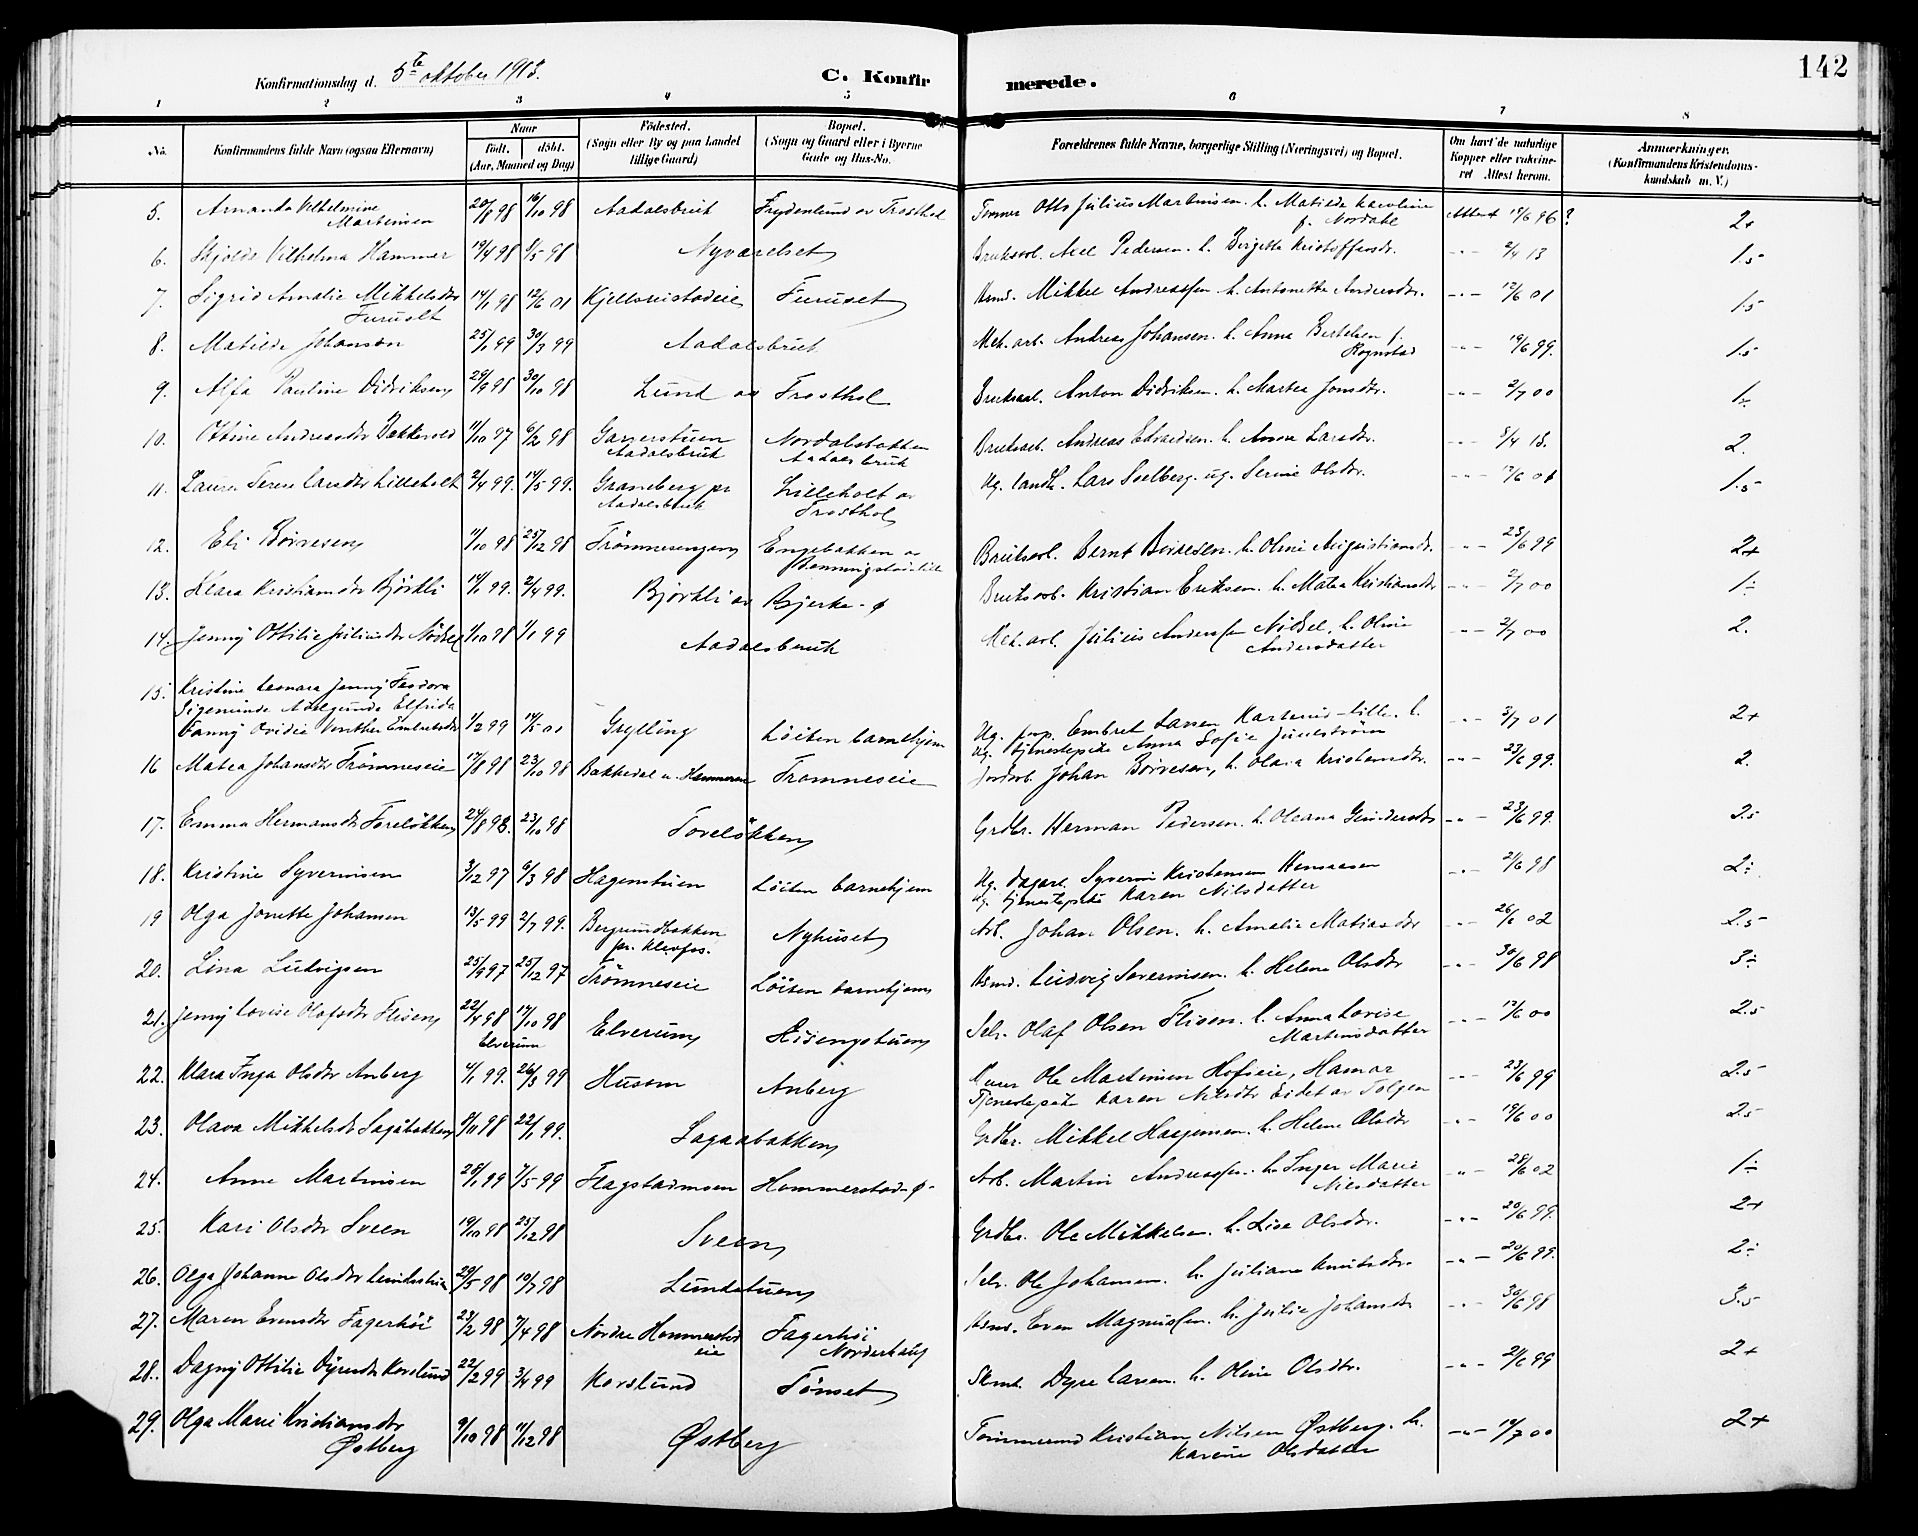 142
Konfirmationsdag d. 5te oktober 1913.
C. Konfirmerede.
1 2 3 4 5 6 7 8
No.
Konfirmandens fulde Navn (ogsaa Efternavn)
Naar
födt. döbt.
(Aar, Maaned og Dag)
Födested.
(Sogn eller By og paa Landet
tillige Gaard)
Bopæl.
(Sogn og Gaard eller i Byerne
Gade og Hus-No.
Forældrenes fulde Navne, borgerlige Stilling (Næringsvei) og Bopæl.
Om havt de naturlige
Kopper eller vakcine-
ret. Attest herom.
Anmærkninger.
(Konfirmandens Kristendoms-
kundskab m. V.)
5. Amanda Vilhelmine Martinsen 20/8 98 16/10 98 Aadalsbruk Frydenlund av Frosthol Tömmer Otto Julius Martinsen. h. Matilde Karoline f. Nordahl Attest 15/6 96? 2+
6. Skjolde Vilhelma Hammer 19/4 98 5/5 98 Nyværelset Bruksarb. Axel Pedersen. h. Birgitte Kristoffersdr. -"- 2/4 13 1.5
7. Sigrid Amalie Mikkelsdtr Furuset 14/1 98 12/6 01 Kjellsrustadeie Furuset Hsmd. Mikkel Andreassen h. Antonette Andersdtr. -"- 12/6 01 1.5
8. Matilde Johansen 25/1 99 30/3 99 Aadalsbruk Mek. arb. Andreas Johansen. h. Anna Bertelsen f. Rognstad -"- 19/6 99. 1.5
9. Alfa Pauline Didriksen 29/9 98 30/10 98 Lund av Frosthol Bruksarb. Anton Didriksen. h. Martea Jonsdtr. -"- 2/7 00 1÷
10. Ottine Andreasdtr Bakkevold 11/10 97 6/2 98 Garverstuen Aadalsbruk Nordalsbakken Aadalsbruk Bruksarb. Andreas Edvardsen. h. Anna Larsdtr. -"- 5/4 13. 2.
11. Laura Terese Larsdtr Lilleholt 2/4 99. 14/5 99. Graneberg pr Aadalsbruk Lilleholt av Frosthol Ug. landh. Lars Solberg. ug. Serine Olsdtr. -"- 12/6 01 1.5
12. Eli Børresen 11/10 98 25/12 98 Trömnesengen Engebakken av Bruksarb. Bernt Børresen. h. Oline Augustiansdr. -"- 23/6 99 2+
13. Klara Kristiansdtr Björkli 14/1 99. 2/4 99. Björkli av Bjerke-ø Bruksarb. Kristian Eriksen. h. Matea Kristiansdtr -"- 2/7 00 1÷
14. Jenny Ottilie Juliusdtr Nödsel 1/10 98 1/1 99 Aadalsbruk Mek. arb. Julius Anderssen Nödsel, h. Oline Andersdatter -"- 2/7 00 2.
15. Kristine Leonara Jenny Feodora
Sigemunde Adelgunde Elfrida
Fanny Ovidie Embretsdtr 1/2 99 14/5 01 Grylling Löiten barnehjem Ug. Embret Larsen Karterud-lille. h. ug. tjenestepike Anna Sofie Juulström -"- 3/7 01 2+
16 Matea Johansdtr Trömneseie 17/8 98 23/10 98 Bakkedal u. Hommeren Tromneseie Jordarb. Johan Börresen, h. Olava Kristiansdtr. -"- 23/6 99. 2.
17. Emma Hermansdtr Foreløkken 24/8 98. 23/10 98 Foreløkken Grdbr. Herman Pedersen. h. Oleana Gundersdtr -"- 23/6 99. 2.5
18. Kristine Syversinsen 3/12 97 6/3 98 Hagenstuen Löiten barnehjem Ug. dagarb. Syverin Kristensen Hemsaasen ug. tjenestepike Karen Nilsdatter -"- 21/6 98 2÷
19 Olga Jonette Johansen 13/5 99 2/7 99. Bergundbakken pr. Klevfos. Nyhuset Arb. Johan Olsen. h. Amalie Matiasdtr -"- 26/6 02 2.5
20. Lina Ludvigsen 25/9 97 25/12 97 Trömneseie Löiten barnehjem Hsmd. Ludvig Severinsen. h. Helene Olsdtr -"- 30/6 98 3÷
21. Jenny Lovise Olafsdtr Flisen 22/4 98 17/10 98 Elverum Elverum Hisengstuen Selv. Olaf Olsen Flisen. h. Anna Lovise Martinsdatter -"- 12/6 00 2.5
22. Klara Inga Olsdtr Anberg 4/1 99. 26/3 99 Husom Anberg Murer Ole Martinsen Hofseie, Hamar Tjenestepike Karen Nilsdtr Eidet av Tolgen -"- 23/6 99 2.5
23. Olava Mikkelsdtr Sagabakken 8/11 98 22/1 99. Sagaabakken Grdbr. Mikkel Haagensen. h. Helene Olsdtr -"- 19/6 00 2.5
24. Anne Martinsen 28/1 99 7/5 99 Flagstadmoen Hommerstad-ø- Arb. Martin Andreassen. h. Inger Marie Nilsdatter -"- 28/6 02 1÷
25. Kari Olsdtr Sveen 19/10 98 25/12 98 Sveen Grdbr. Ole Mikkelsen. h. Lise Olsdtr. -"- 20/6 99. 2+
26. Olga Johanne Olsdtr Lundestuen 29/5 98 10/7 98 Lundstuen Selv. Ole Johansen. h. Juliane Knutsdtr. -"- 20/6 99. 2÷
27. Maren Evensdtr Fagerhöi 21/2 98 7/4 98 Nordre Hommerstad eie Fagerhöi Norderhaug Hsmd. Even Magnussen. h. Julie Johansdtr -"- 30/6 98 3.5
28. Dagny Ottilie Dyresdtr Korslund 22/2 99 3/4 99 Korslund Tönset Skrædd. Dyre Larsen. h. Oline Olsdtr. -"- 21/6 99 2+
29. Olga Marie Kristiansdtr Østberg 9/10 98 11/12 98 Østberg Tömmermd Kristian Nilsen Østberg. h. Karine Olsdatter -"- 14/7 00 2+